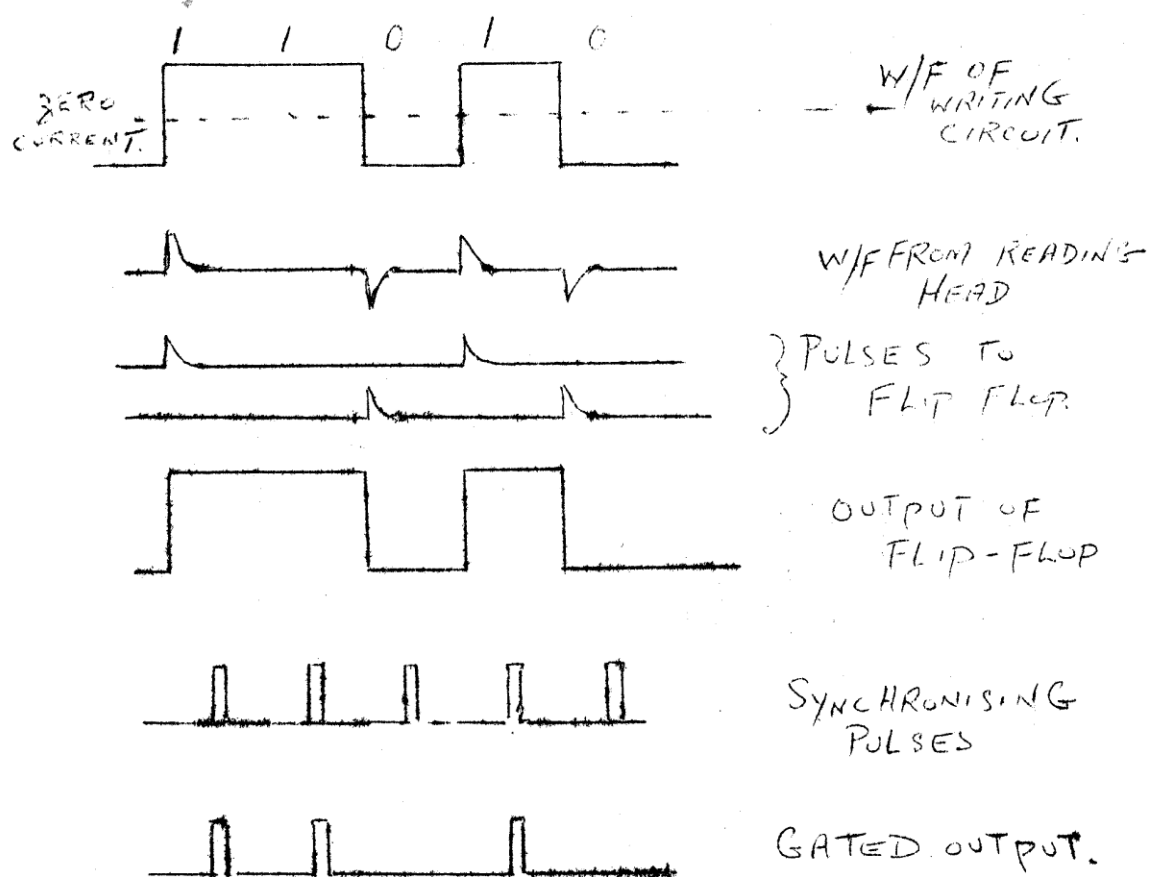 1 1 0 1 0
ZERO
CURRENT.
W/F OF
WRITING
CIRCUIT.
W/F FROM READING
HEAD
PULSES TO
FLIP FLOP.
OUTPUT OF
FLIP-FLOP
SYNCHRONISING
PULSES
GATED OUTPUT.